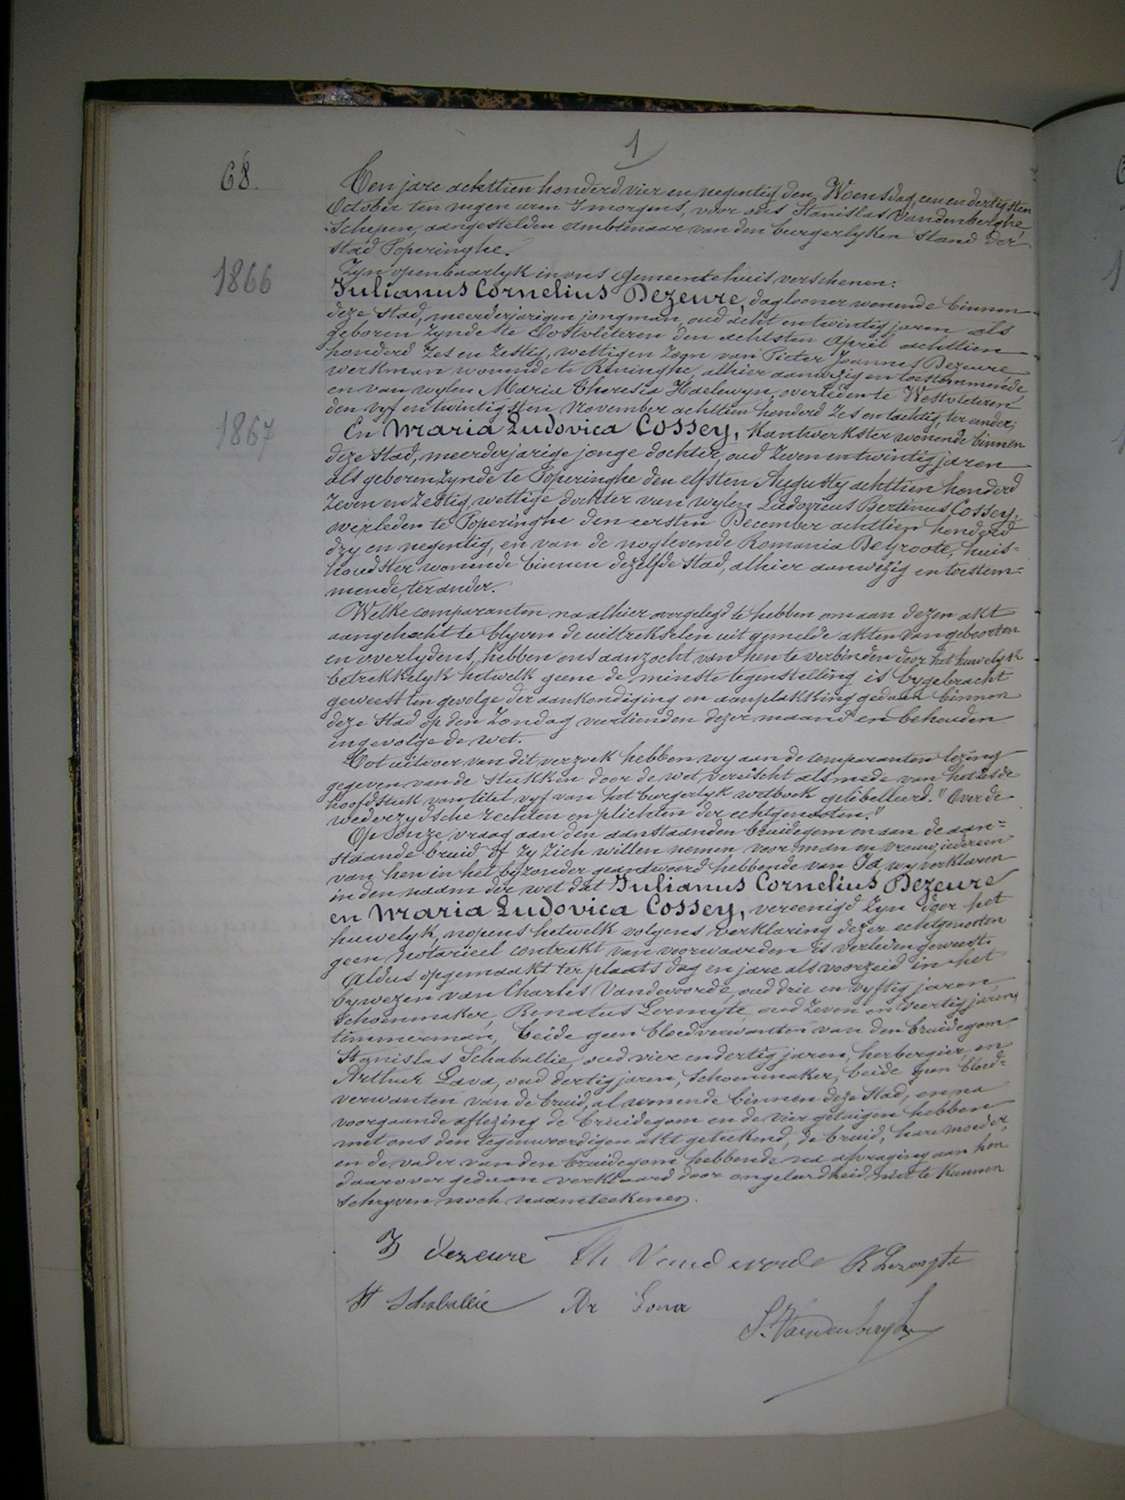 1
68.
Ten jare achttien honderd vier en negentig den Woensdag, een en dertigsten
October ten negen uren 's morgens, voor ons Stanislas Vandenberghe
Schepen, aangestelden ambtenaar van den burgerlyken stand der
stad Poperinghe.
Zyn openbaarlyk in ons gemeentehuis verschenen:
1866
Julianus Cornelius Dezeure, daglooner wonende binnen
deze stad, meerderjarigen jongman, oud acht en twintig jaren als
geboren zynde te Oostvleteren den achtsten April achttien
honderd zes en zestig, wettigen zoon van Pieter Joannes Dezeure
werkman wonende te Reninghe, alhier aanwezig en toestemmende
en van wylen Maria Theresia Haelewyn, overleden te Westvleteren
den vyf en twintigsten November achttien honderd zes en tachtig, ter ander;
1867
En Maria Ludovica Cossey, kantwerkster wonende binnen
deze stad, meerderjarige jonge dochter, oud zeven en twintig jaren
als geboren zynde te Poperinghe den elfsten Augusty achttien honderd
zeven en zestig, wettige dochter van wylen Ludovicus Bertinus Cossey,
overleden te Poperinghe den eersten December achttien honderd
dry en negentig, en van de noglevende Romania DeGroote, huis-
houdster wonende binnen dezelfde stad, alhier aanwezig en toestem-
mende, ter ander.
Welke comparanten na alhier overgelegd te hebben om aan dezen akt
aangehecht te blyven de uittreksels uit gemelde akten van geboorten
en overlydens, hebben ons aanzocht van hen te verbinden door het huwelyk
betrekkelyk hetwelk geene de minste tegenstelling is bygebracht
geweest ten gevolge der aankondiging en aanplakking gedaan binnen
deze stad op den Zondag veertienden dezer maand en behouden
ingevolge de wet.
Tot uitvoer van dit verzoek hebben wy aan de comparanten lezing
gegeven van de stukken door de wet vereischt alsmede van het zesde
hoofdstuk van titel vyf van het burgerlyk wetboek gelibelleerd: "Over de
wederzydsche rechten en plichten der echtgenooten."
Op onze vraag aan den aanstaanden bruidegom en aan de aan-
staande bruid of zy zich willen nemen voor man en vrouw, iedereen
van hen in het byzonder geantwoord hebbende van Ja, wy verklaren
in den naam der wet dat Julianus Cornelius Dezeure
en Maria Ludovica Cossey, vereenigd zyn door het
huwelyk, nopens hetwelk volgens verklaring dezer echtgenooten
geen notarieel contrakt van voorwaarden is verleden geweest.
Aldus opgemaakt ter plaats dag en jare als voorzeid in het
bywezen van Charles Vandewoorde, oud drie en vyftig jaren,
schoenmaker, Renatus oud zeven en veertig jaren,
timmerman, beide geen bloedverwanten van den bruidegom
Stanislas Schaballie, oud vier en dertig jaren, herbergier en
Arthur Lava, oud dertig jaren, schoenmaker, beide geen bloed-
verwanten van de bruid, al wonende binnen deze stad, en na
voorgaande aflezing de bruidegom en de vier getuigen hebben
met ons den tegenwoordigen akt geteekend, de bruid, hare moeder,
en de vader van den bruidegom hebbende na afvraging aan hen
daarover gedaan verklaard door ongeleerdheid niet te kunnen
schryven noch naamteekenen.
J Dezeure Ch Vandewoorde R
St Schaballie Ar Lava
S. Vandenberghe